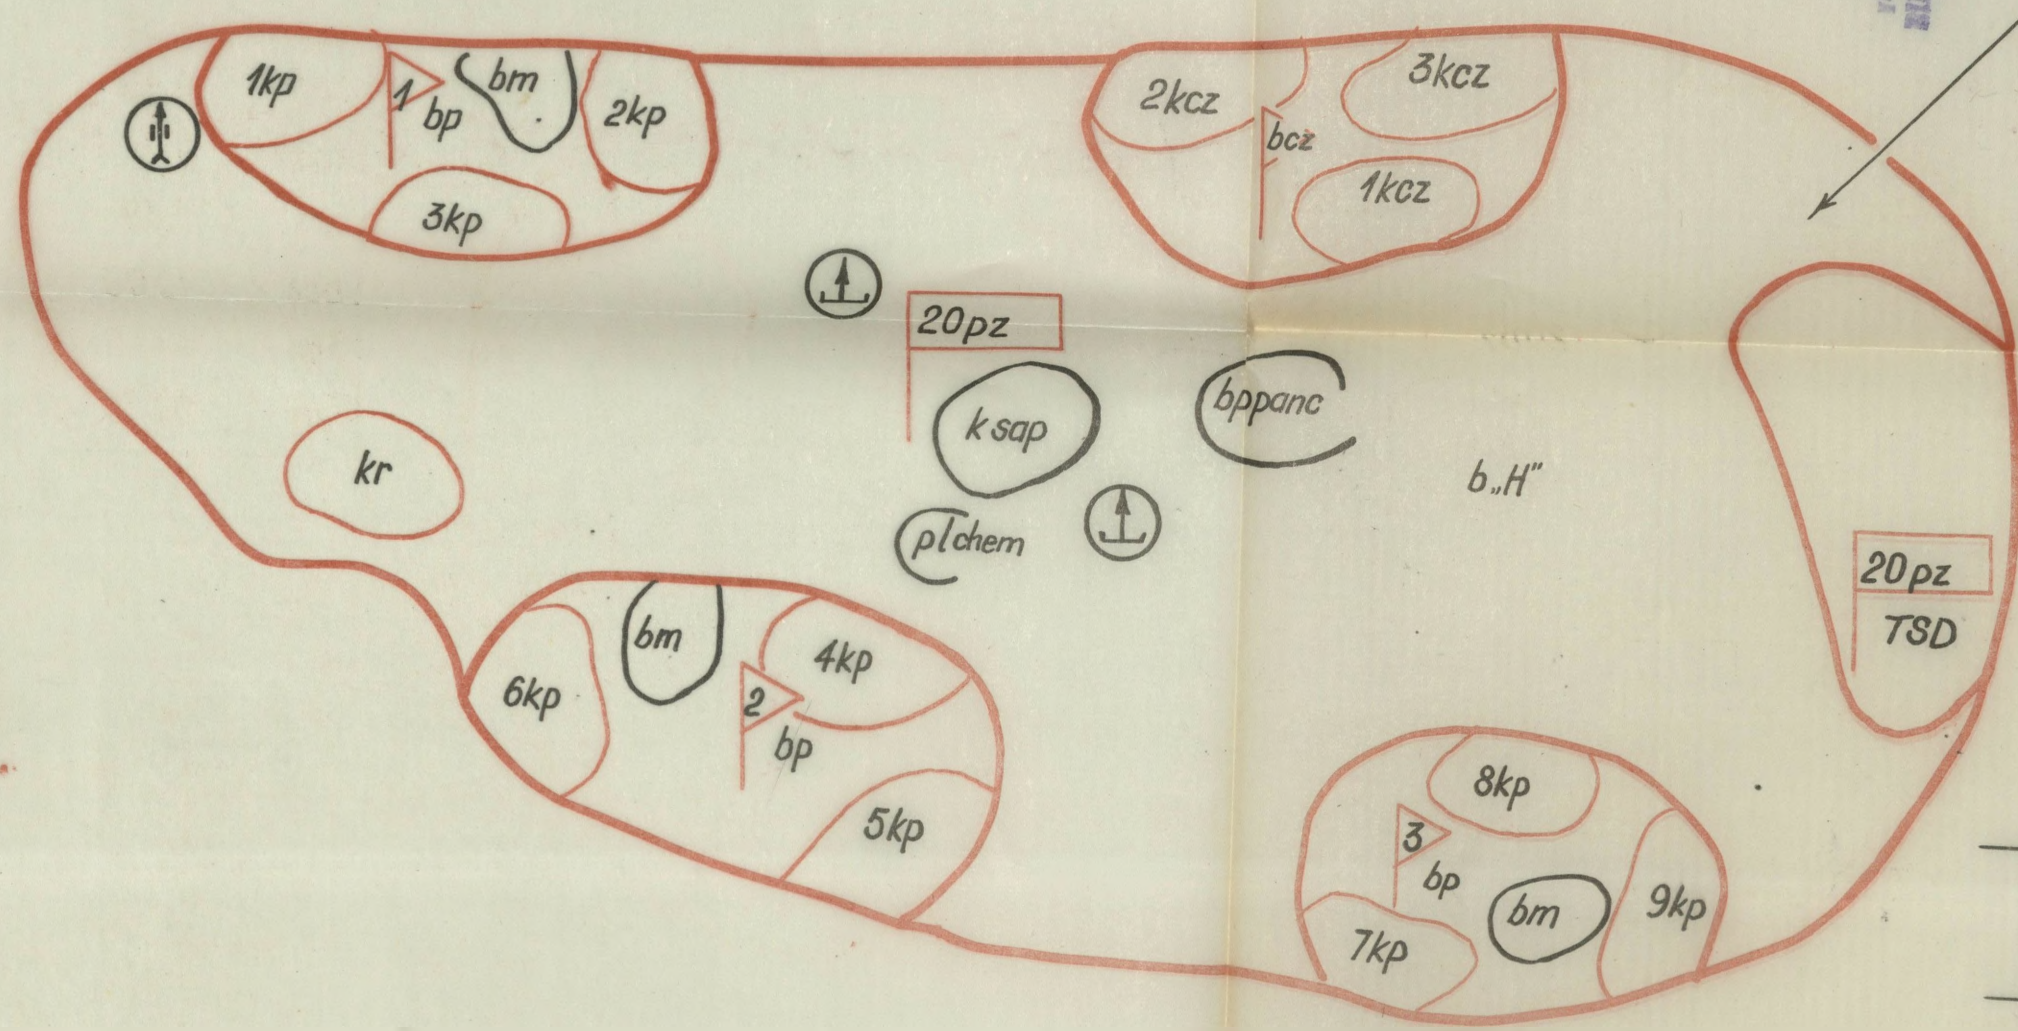 1kp
1
bp
bm
2kp
3kp
2kcz
3kcz
bcz
1kcz
20pz
ksap
bppanc
b„H”
kr
plchem
20pz
TSD
6kp
bm
4kp
2
bp
5kp
8kp
3
bp
bm
9kp
7kp